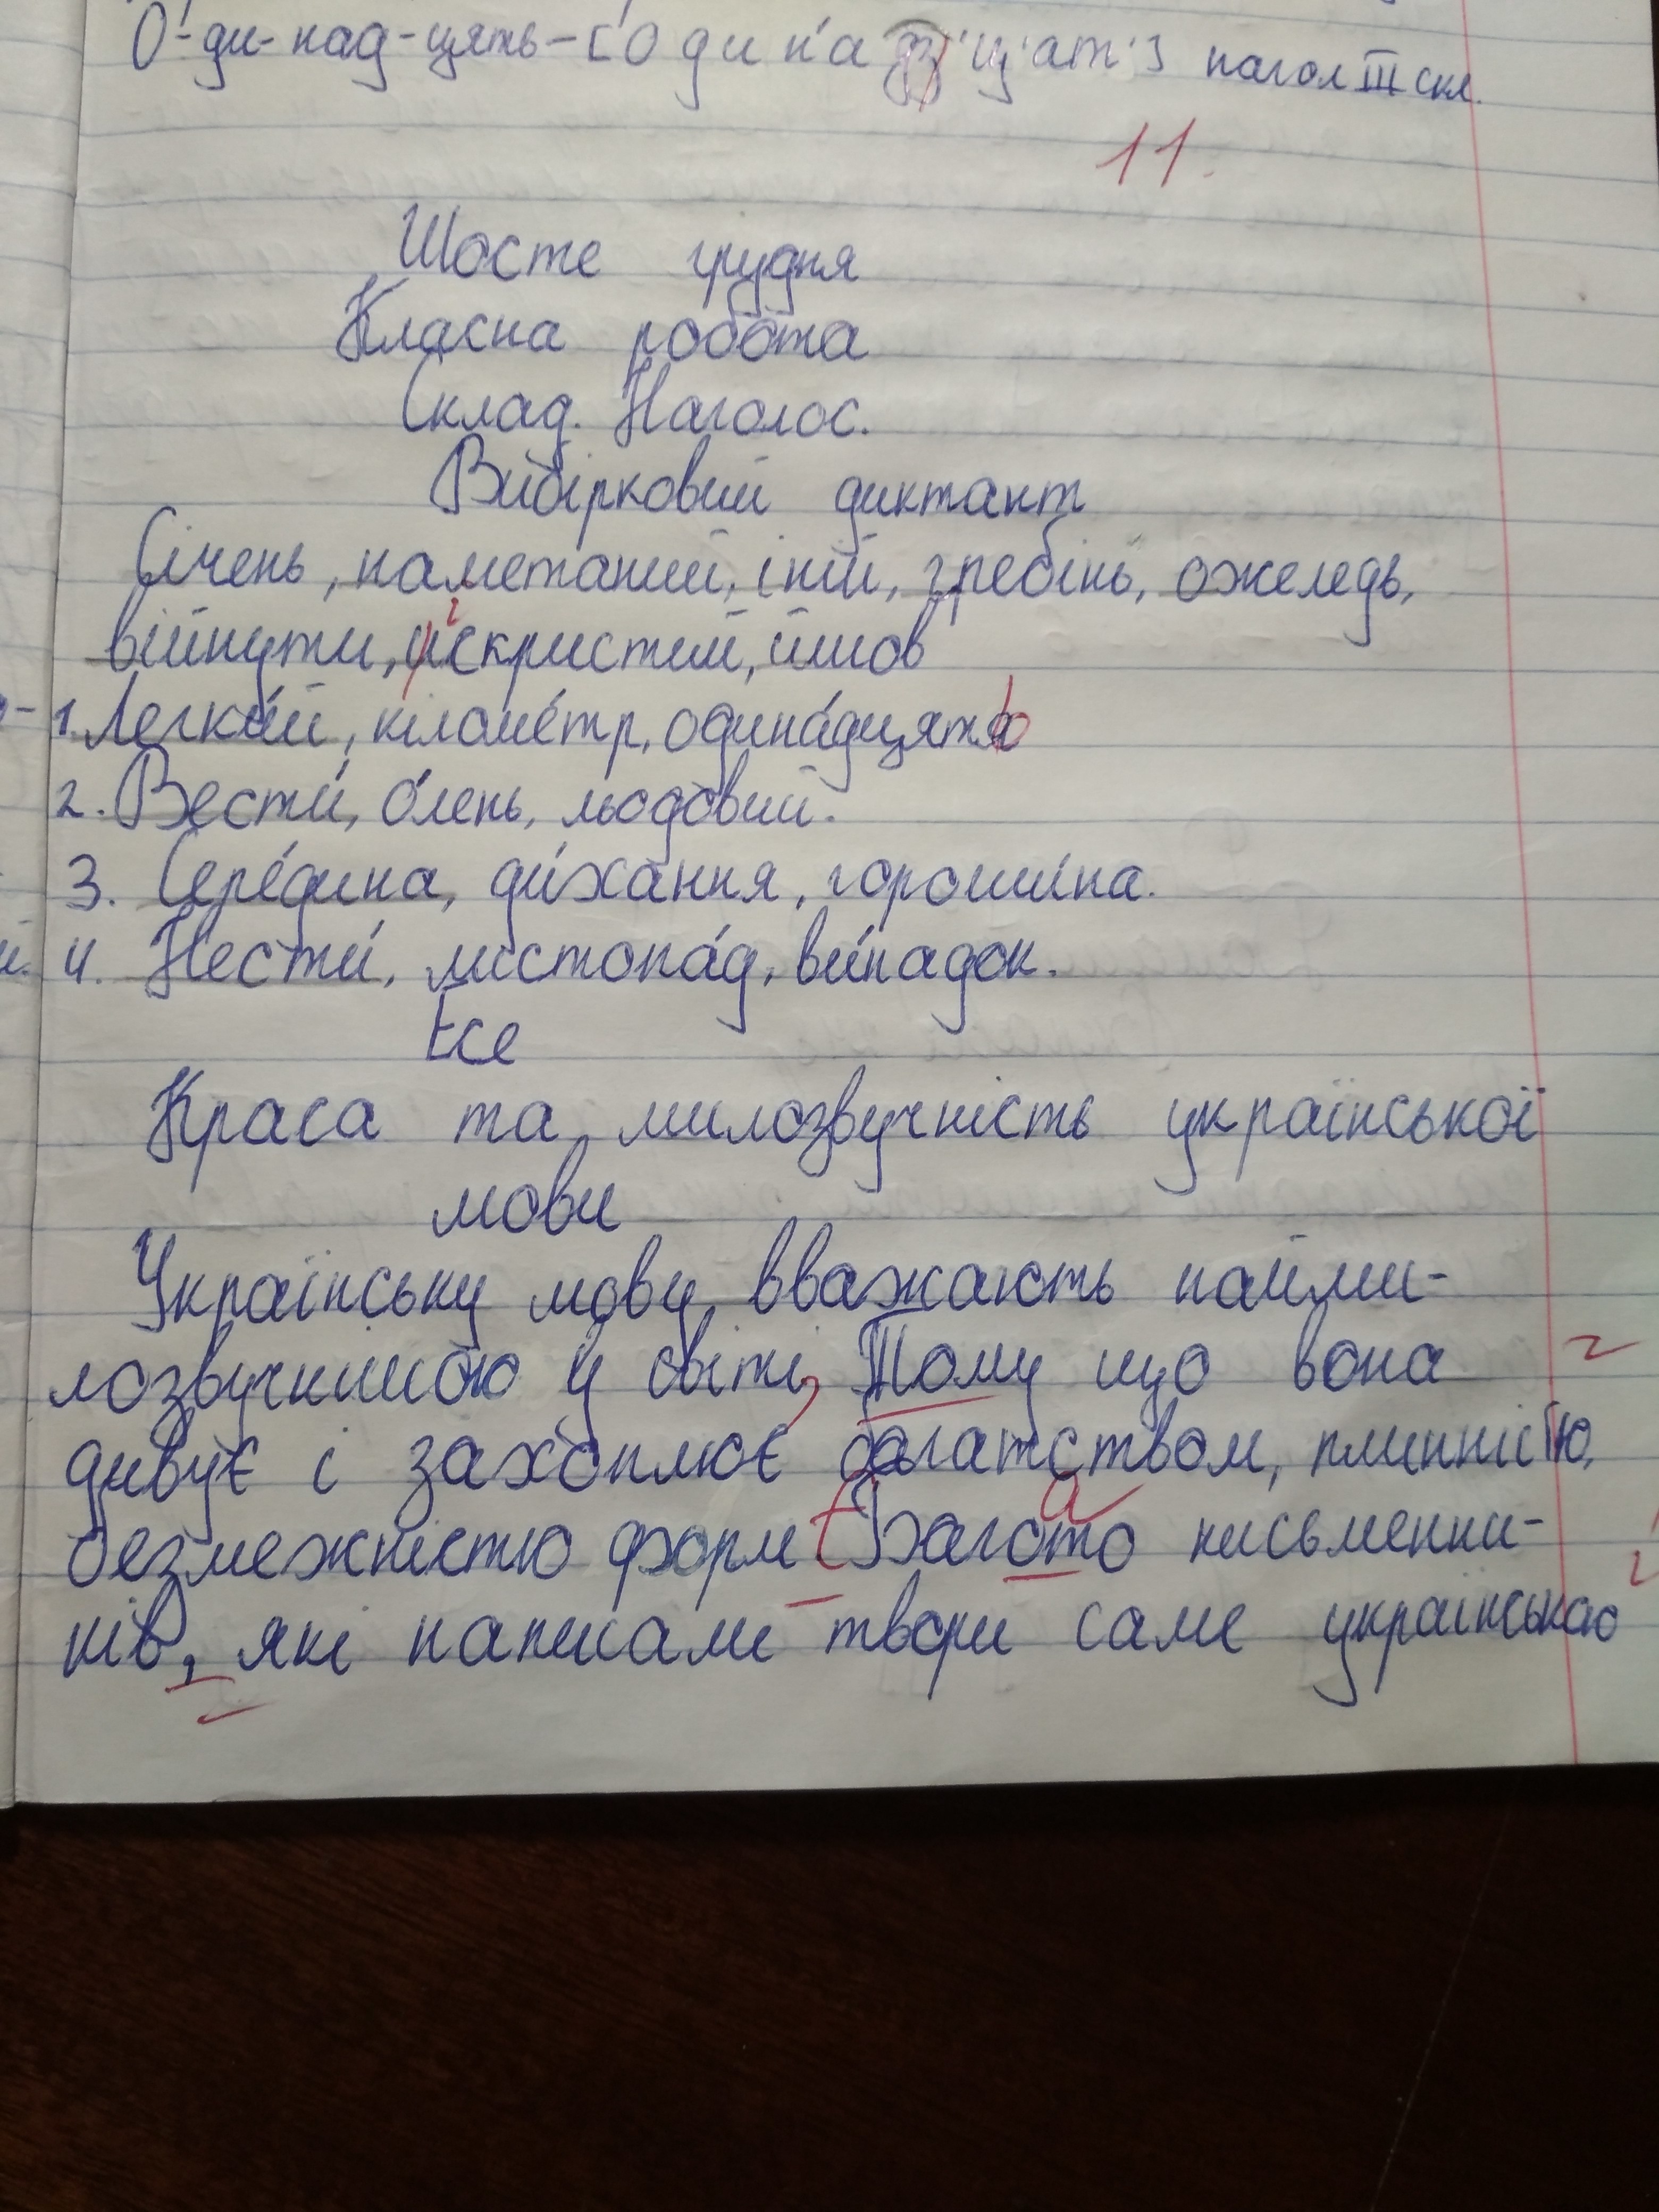 О-ди-над-цять-[о д и н а дз' ц' а т'] нагол III скл.
11.
Шосте грудня
Класна робота
Склад. Наголос.
Вибірковий диктант
Січень, наметаний, іній, гребінь, ожеледь,
війнути, іскристий, йшов
1. Легки́й, кіломе́тр, одина́дцять
2. Вести́, о́лень, льодовий.
3. Сере́дина, ди́хання, гороши́на.
4. Нести́, листопа́д, ви́падок.
Есе
Краса та милозвучність української
мови
Українську мову вважають найми-
лозвучнішою у світі, Тому що вона
дивує і захоплює богатством, плинністю,
безмежністю форм Багото письменни-
ків, які написали твори саме українською